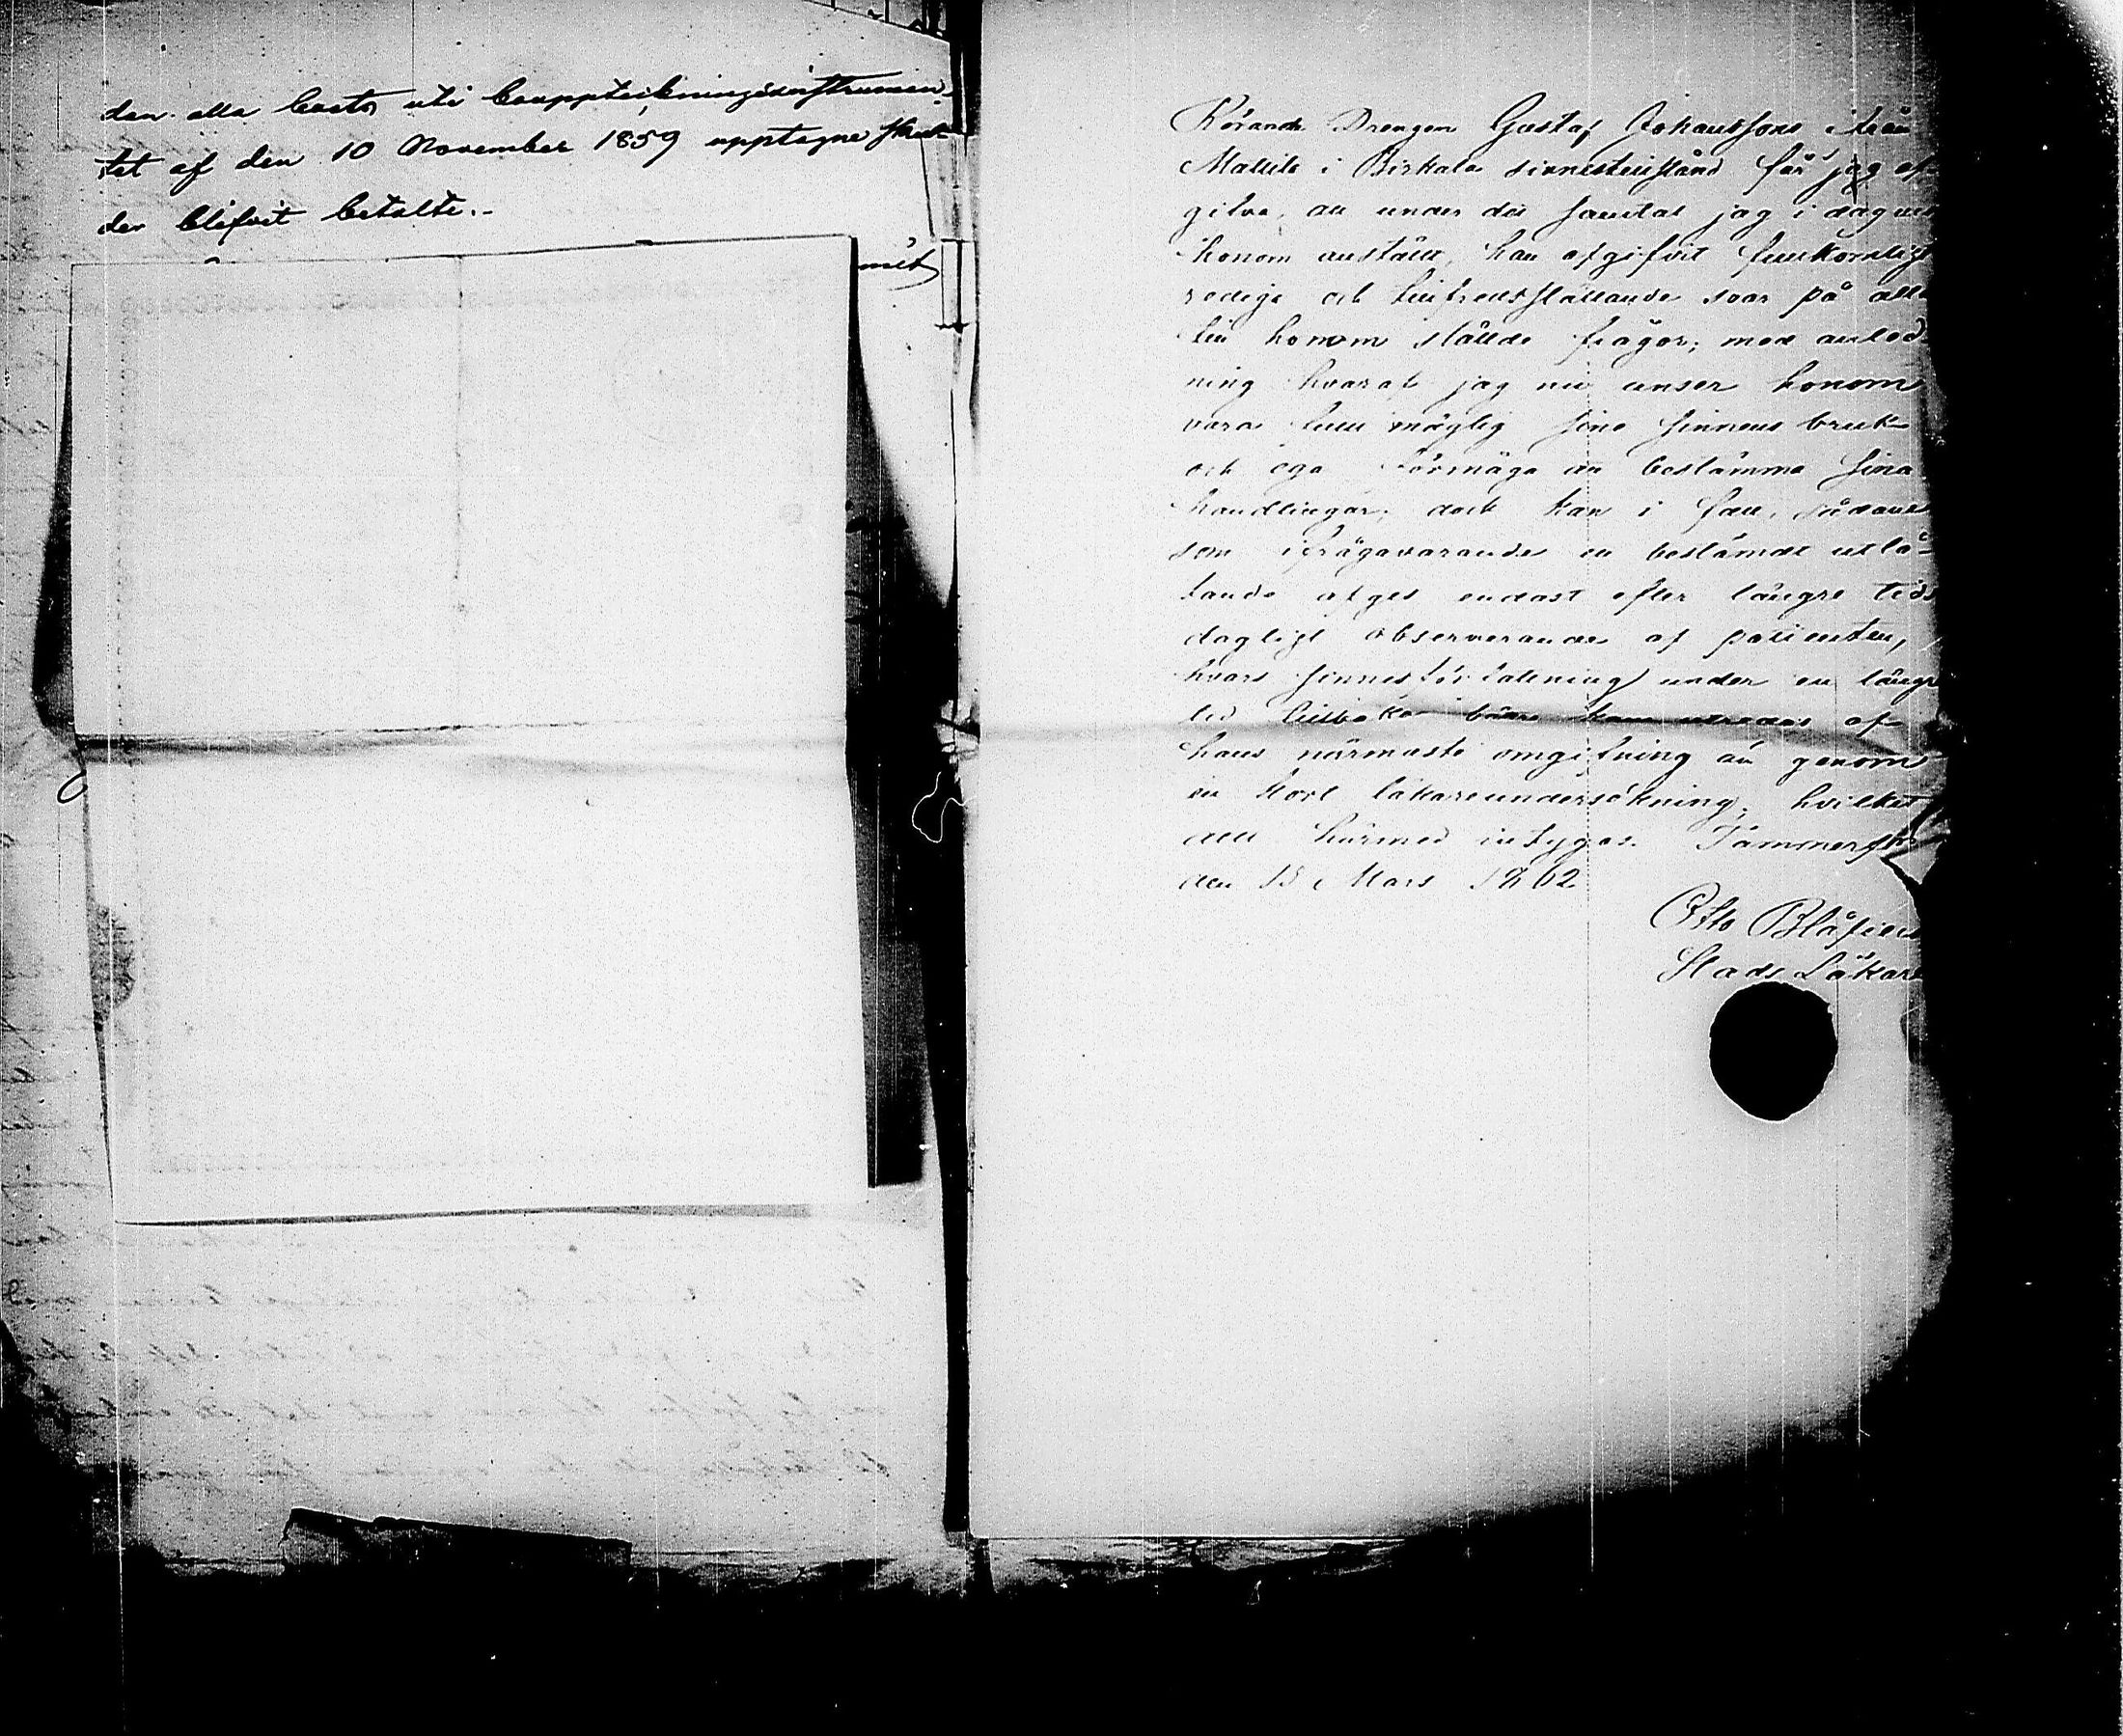 den alla besta uti bouppteckningsinstrumen
tet af den 10 November 1859 upptagne skul
der blifvit betalte.-
mit
Rörande Drengen Gustaf Johansssons ifrån
Mattila i Birkala sinnestillstånd får jag af-
gifva, att under det samtal jag i dag med
honom anstält, han afgifvit fullkomligt
redige och tillfredsställande svar på alla
till honom ställde frågor; med anled
ning hvaraf jag nu anser honom
vara full mägtig sine sinnens bruk
och ega förmåga att bestämma sina
handlingar; dock kan i fall, sådane
som ifrågavarande en bestämdt utlå-
tande afges endast efter längre tids
dagligt observerande af patienten,
hvars sinnesförfattning under en längre
tid tillbaka bättre kan utredas af
hans närmaste omgifning än genom
en kort läkareundersökning; hvilket
allt härmed intygas. Tammerfors
den 15 Mars 1862
Otto Blåfield
Stads Läkare